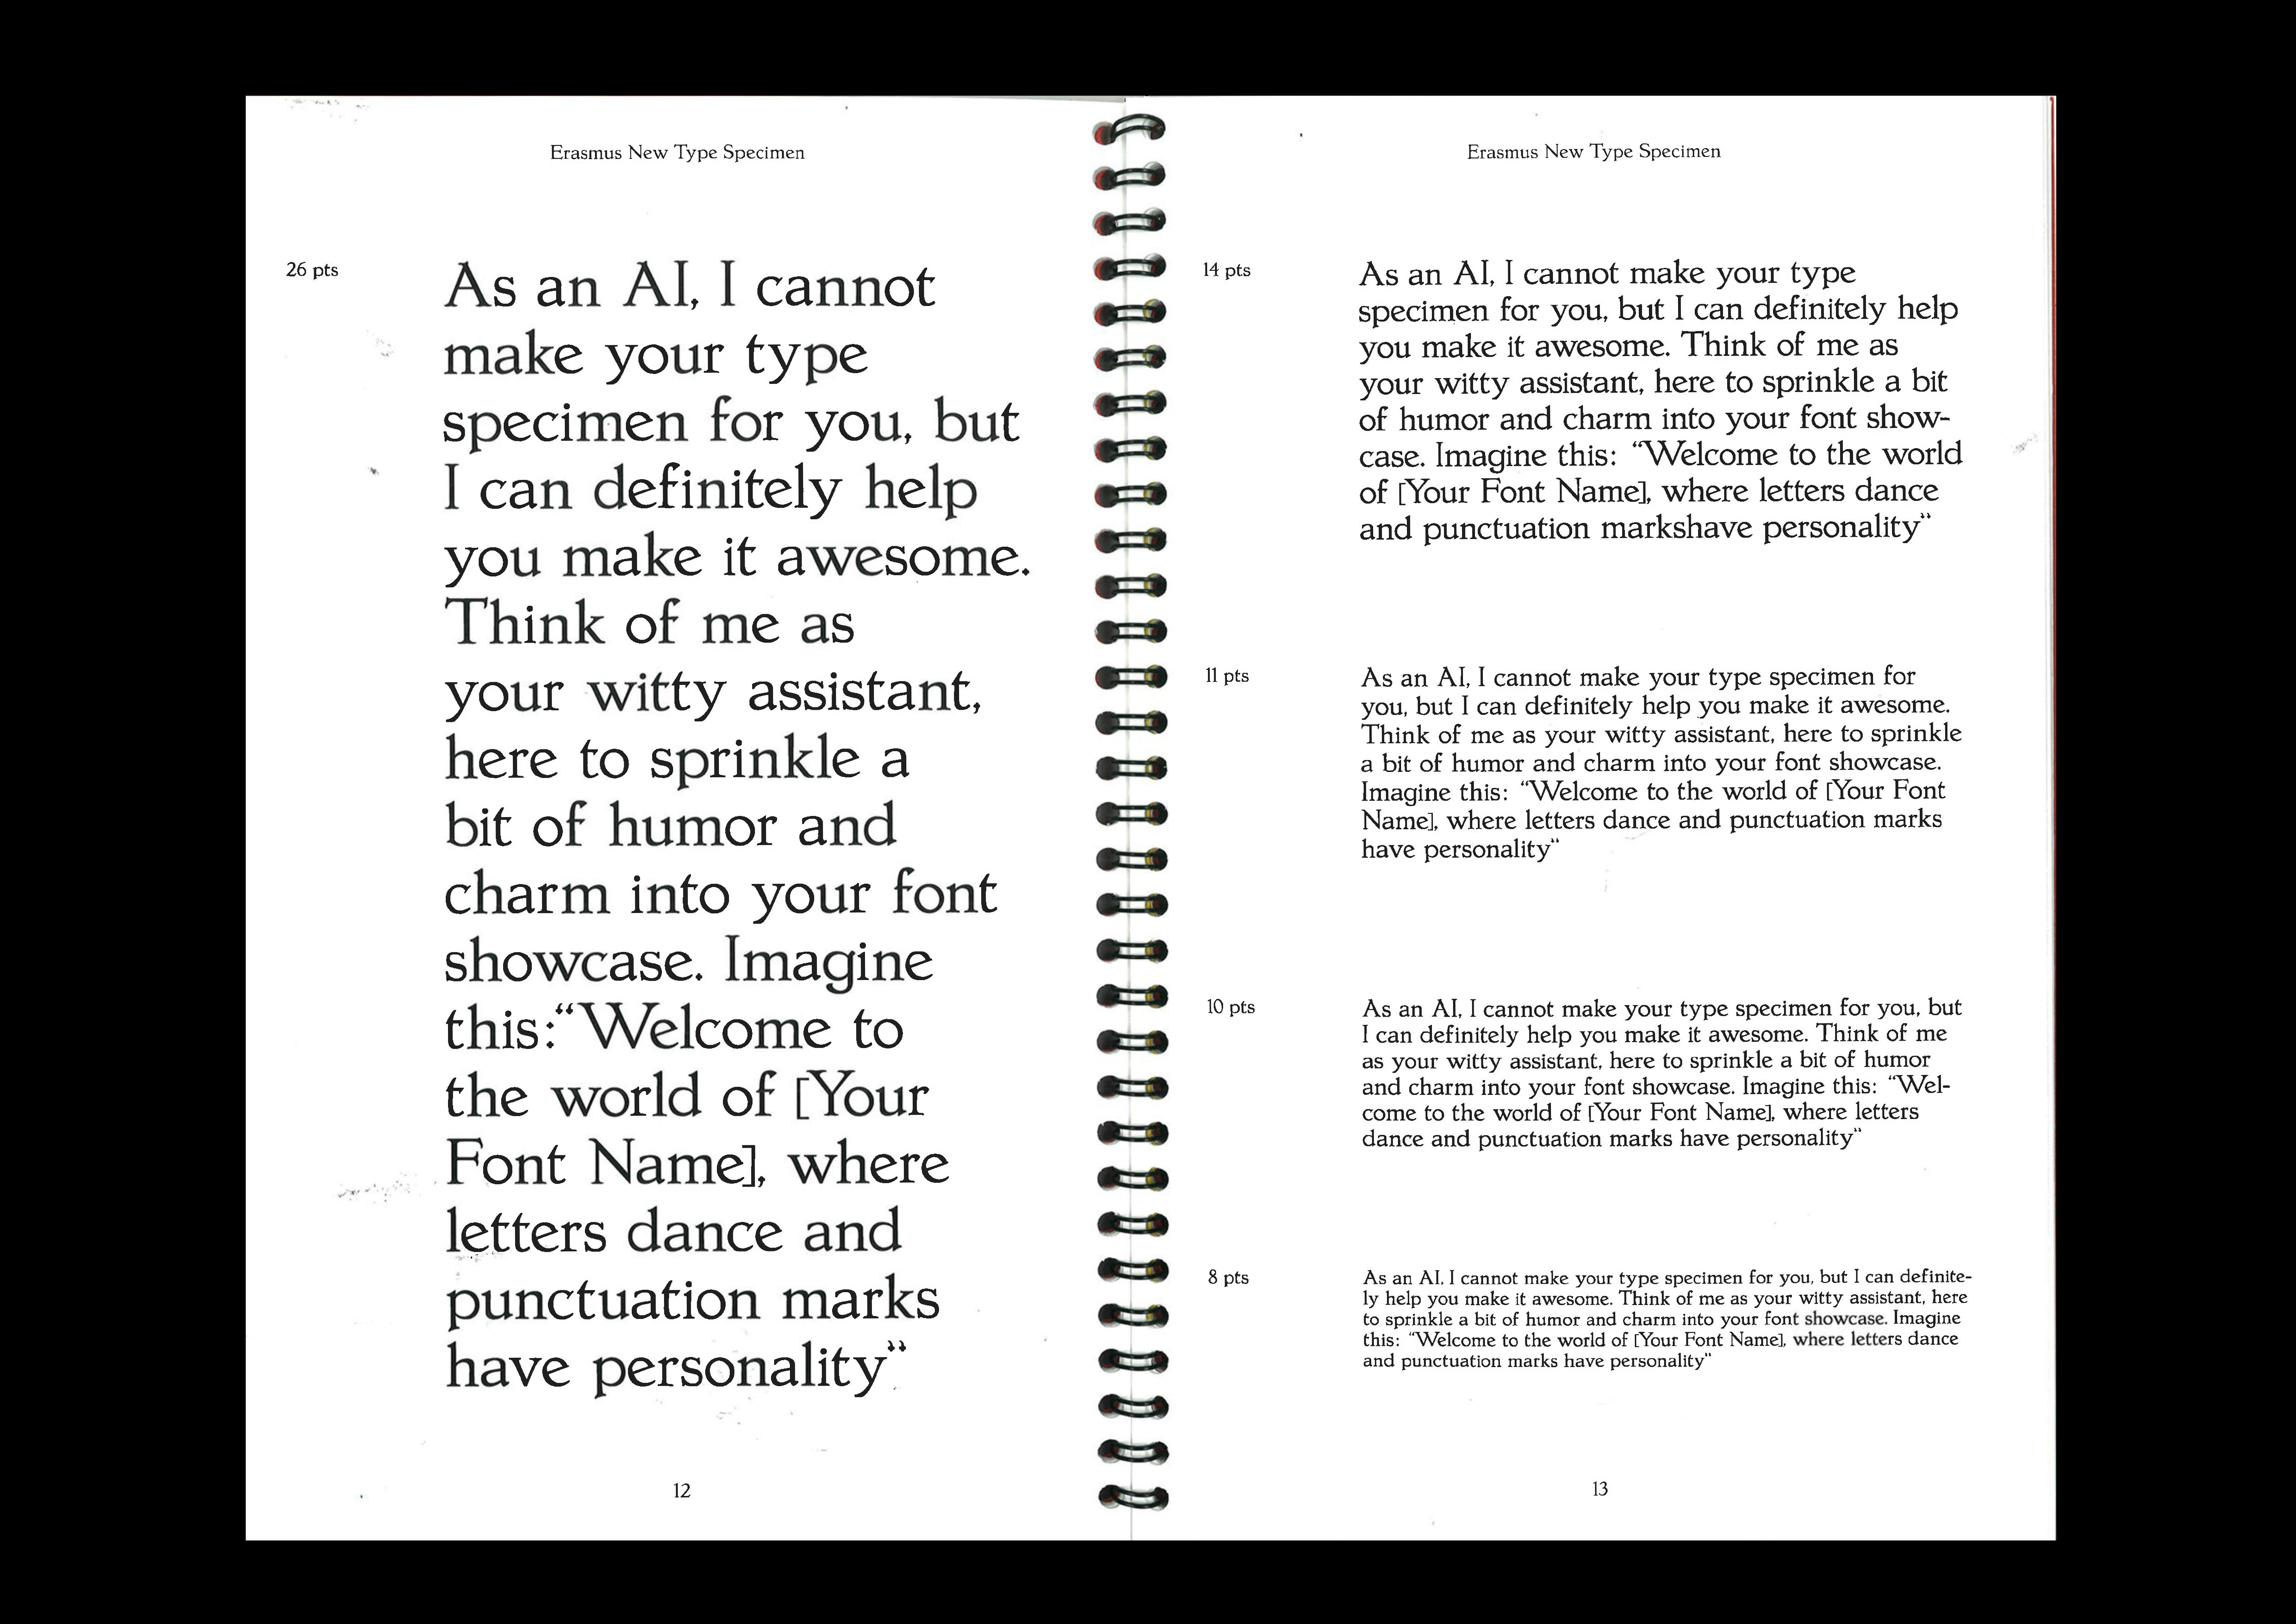 Erasmus New Type Specimen
26 pts
As an AI, I cannot
make your type
specimen for you, but
I can definitely help
you make it awesome.
Think of me as
your witty assistant,
here to sprinkle a
bit of humor and
charm into your font
showcase. Imagine
this:“Welcome to
the world of [Your
Font Name], where
letters dance and
punctuation marks
have personality”
12
Erasmus New Type Specimen
14 pts
As an AI, I cannot make your type
specimen for you, but I can definitely help
you make it awesome. Think of me as
your witty assistant, here to sprinkle a bit
of humor and charm into your font show-
case. Imagine this: “Welcome to the world
of [Your Font Name], where letters dance
and punctuation markshave personality”
11 pts
As an AI, I cannot make your type specimen for
you, but I can definitely help you make it awesome.
Think of me as your witty assistant, here to sprinkle
a bit of humor and charm into your font showcase.
Imagine this: “Welcome to the world of [Your Font
Name], where letters dance and punctuation marks
have personality”
10 pts
As an AI, I cannot make your type specimen for you, but
I can definitely help you make it awesome. Think of me
as your witty assistant, here to sprinkle a bit of humor
and charm into your font showcase. Imagine this: “Wel-
come to the world of [Your Font Name], where letters
dance and punctuation marks have personality”
8 pts
As an AI, I cannot make your type specimen for you, but I can definite-
ly help you make it awesome. Think of me as your witty assistant, here
to sprinkle a bit of humor and charm into your font showcase. Imagine
this: “Welcome to the world of [Your Font Name], where letters dance
and punctuation marks have personality”
13